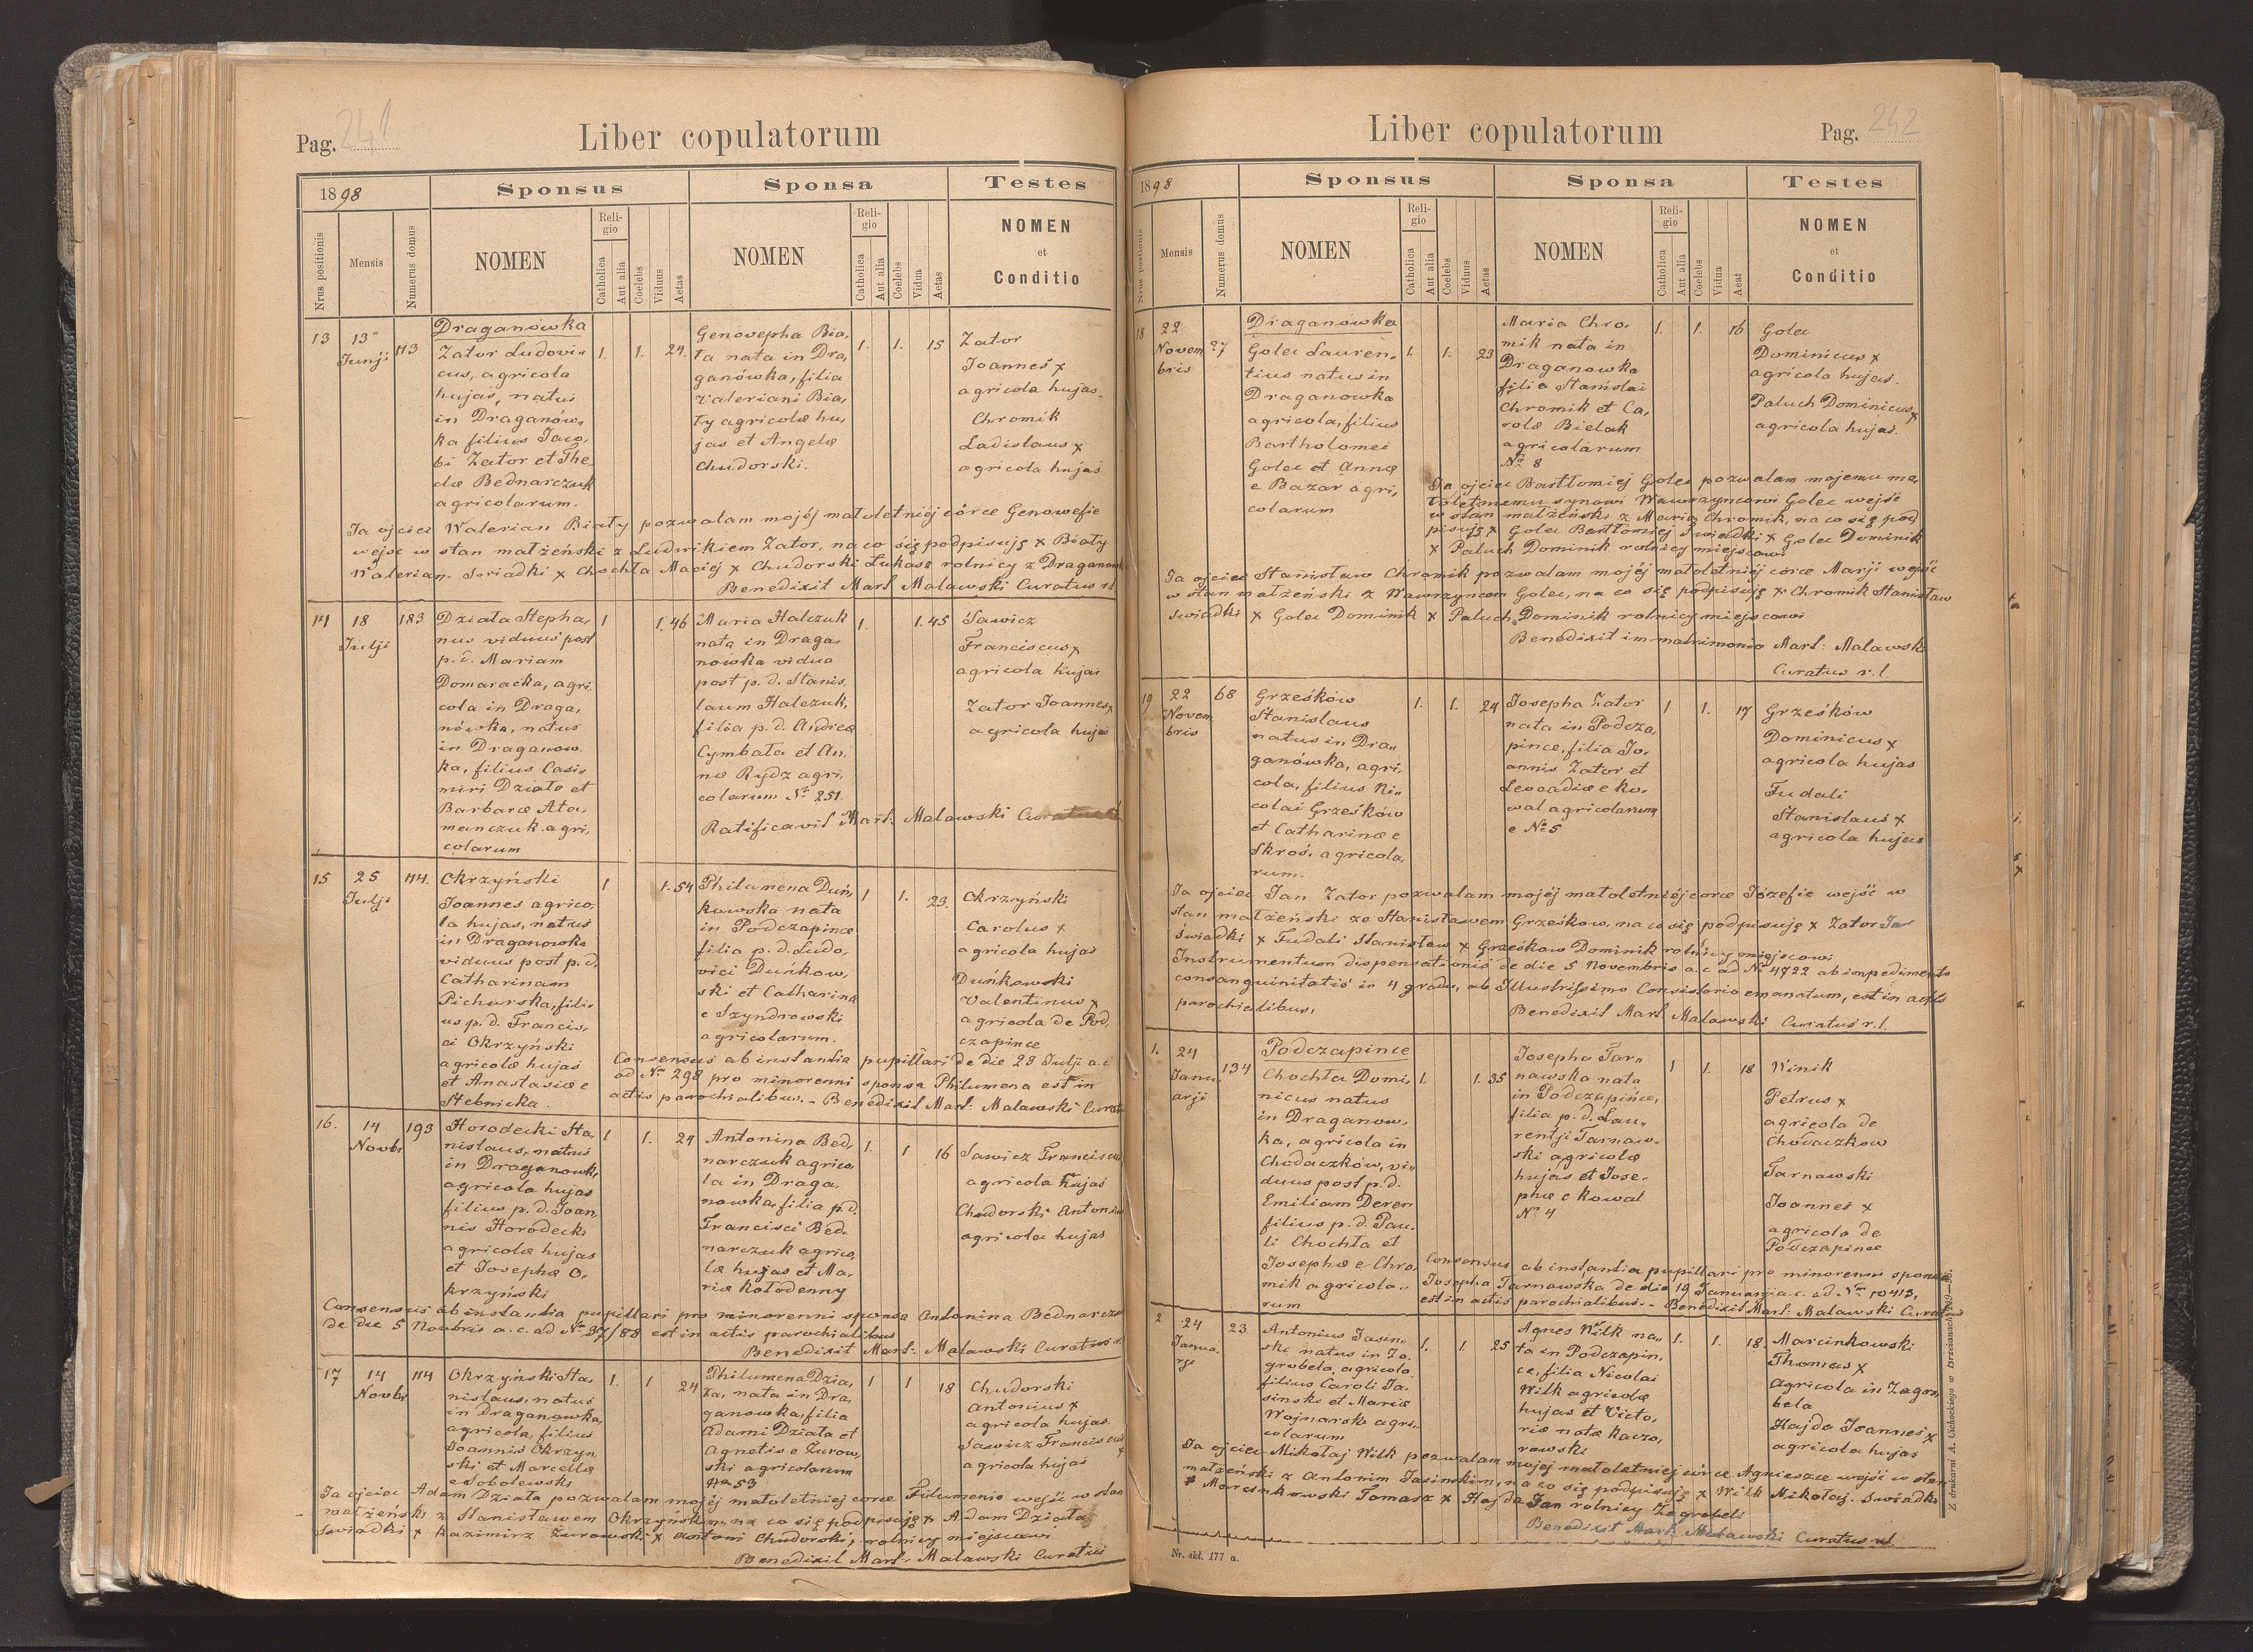 Pag. 241
Liber copulatorum
1898
Sponsus
Sponsa
Testes
Nrus positionis
Mensis
Numerus domus
NOMEN
Religio
Catholica
Aut alia
Coelebs
Viduus
Aetas
NOMEN
Religio
Catholica
Aut alia
Coelebs
Vidua
Aetas
NOMEN
et
Conditio
13
13
Junji
113
Draganówka
Zator Ludovi-
cus, agricola
hujas, natus
in Draganów-
ka filius Jaco-
bi Zator et The-
clæ Bednarczuk
agricolarum.
1.
1.
24.
Genovepha Bia-
ła nata in Dra-
ganówka, filia
Valeriani Bia-
ły agricolæ hu-
jas et Angelæ
Chudorski.
1.
1.
15
Zator
Joannes x
agricola hujas.
Chromik
Ladislaus x
agricola hujas
Ja ojciec Walerian Biały pozwalam mojéj małoletniéj córce Genowefie
wejść w stan małżeński z Ludwikiem Zator, na co się podpisuję x Biały
Walerian. Świadki x Chochła Maciej x Chudorski Łukasz rolnicy z Draganówk
Benedixit Mart Malawski Curatus r.l.
14
18
Julji
183
Działa Stepha-
nus viduus post
p. d. Mariam
Domaracka, agri-
cola in Draga-
nówka, natus
in Draganow-
ka, filius Casi-
miri Działo et
Barbaræ Ata-
manczuk agri-
colarum
1
1.
46
Maria Halczuk
nata in Draga-
nówka vidua
post p. d. Stanis-
laum Halczuk,
filia p. d. Andreæ
Cymbała et An-
næ Rydz agri-
colarum No 251.
1.
1.
45
Sawicz
Franciscus x
agricola hujas
Zator Joannes x
agricola hujas
Ratificavit Mart. Malawski Curatus
15
25
Julji
114.
Okrzyński
Joannes agrico-
la hujas, natus
in Draganowka
viduus post p. d.
Catharinam
Pichurska, fili-
us p. d. Francis-
ci Okrzyński
agricolæ hujas
et Anastasiæ e
Stebnicka.
1
1.
54
Philumena Duń-
kowska nata
in Podczapince
filia p. d. Ludo-
vici Dunkow-
ski et Catharinæ
e Szyndrowski
agricolarum.
1
1.
23.
Okrzyński
Carolus x
agricola hujas
Duńkowski
Valentinus x
agricola de Pod-
czapince
Consensus ab instantia pupillari de die 23 Julji a. c.
ad No 298 pro minorenni sponsa Philumena est in
actis parochialibus. - Benedixit Mart. Malawski Curatus
16.
14
Novbr
193
Horodecki Sta-
nislaus, natus
in Draganowka
agricola hujas
filius p. d. Joan-
nis Horodecki
agricolæ hujas
et Josephæ O-
krzyński
1
1.
24
Antonina Bed-
narczuk agrico-
la in Draga-
nowka, filia p. d.
Francisci Bed-
narczuk agrico-
læ hujas et Ma-
riæ Kołodenny
1.
1
16
Sawicz Franciscus
agricola hujas
Chudorski Antonius
agricola hujas
Consensus ab instantia pupillari pro minorenni sponsa Antonina Bednarczuk
de die 5 Novbris a. c. ad No 97/88 est in actis parochialibus
Benedixit Mart. Malawski Curatus
17
14
Novbr
114
Okrzyński Sta-
nislaus, natus
in Draganowka,
agricola, filius
Joannis Okrzyn-
ski et Marcellæ
e Sobolewski
1.
1
24
Philumena Dzia-
ła, nata in Dra-
ganowka, filia
Adami Działa et
Agnetis e Zurow-
ski agricolarum
No 53
1
1
18
Chudorski
Antonius x
agricola hujas.
Sawicz Franciscus
x
agricola hujas
Ja ojciec Adam Działa pozwalam mojéj małoletniej corce Filumenie wejść w stan
małżeński z Stanisławem Okrzyńskim, na co się podpisuję x Adam Działa
Świadki x Kazimirz Zurowski x Antoni Chudorski, rolnicy miejscowi
Benedixit Mart. Malawski Curatus
Liber copulatorum
Pag. 242
1898
Sponsus
Sponsa
Testes
Nrus positionis
Mensis
Numerus domus
NOMEN
Religio
Catholica
Aut alia
Coelebs
Viduus
Aetas
NOMEN
Religio
Catholica
Aut alia
Coelebs
Vidua
Aetat
NOMEN
et
Conditio
18
22
Novem
bris
27
Draganowka
Golec Lauren-
tius natus in
Draganowka
agricola, filius
Bartholomei
Golec et Annæ
e Bazar agri-
colarum
1.
1.
23
Maria Chro-
mik nata in
Draganowka
filia Stanislai
Chromik et Ca-
rolæ Bielak
agricolarum
No 8
1.
1.
16
Golec
Dominicus x
agricola hujas.
Paluch Dominicus x
agricola hujas.
Ja ojciec Bartłomiéj Golec pozwalam mojemu ma-
łoletniemu synowi Wawrzyncowi Golec wejść
w stan małżeński z Marią Chromik, na co się pod
pisuję x Golec Bartłomiej Świadki x Golec Dominik
x Paluch Dominik rolnicy miejscowi
Ja ojciec Stanisław Chromik pozwalam mojéj małoletniéj córce Marji wejść
w stan małżeński z Wawrzyncem Golec, na co się podpisuję x Chromik Stanisław
świadki x Golec Dominik x Paluch Dominik rolnicy miejscowi
Benedixit im matrimonio Mart: Malawski
Curatus r. l.
19
22
Novem
bris
68
Grześków
Stanislaus
natus in Dra-
ganówka, agri-
cola, filius Ni-
colai Grześków
et Catharinæ e
Skroś. agricola-
rum.
1.
1.
24
Josepha Zator
nata in Podcza-
pince, filia Jo-
annis Zator et
Leocadiæ e Ko-
wal agricolarum
e No 5
1
1.
17
Grześków
Dominicus x
agricola hujas
Fudali
Stanislaus x
agricola hujas
Ja ojciec Jan Zator pozwalam mojéj małoletniéj corce Józefie wejść w
stan małżeński ze Stanisławem Grześkow, na co się podpisuję x Zator Jan
Świadki x Fudali Stanisław x Grześkow Dominik rolnicy miejscowi
Instrumentum dispensationis de die 5 Novembris a. c. ad No 4722 ab impedimento
consanguinitatis in 4 gradu, ab Illustrissimo Consistorio emanatum, est in actis
parochialibus.
Benedixit Mart. Malawski Curatus r. l.
1.
24
Janu-
arji
134
Podczapince
Chochła Domi-
nicus natus
in Draganow-
ka, agricola in
Chodaczków, vi-
duus post p. d.
Emiliam Deren
filius p. d. Pau-
li Chochła et
Josephæ e Chro-
mik agricola-
rum
1.
1.
35
Josepha Tar-
nawska nata
in Podczapince,
filia p. d. Lau-
rentji Tarnaw-
ski agricolæ
hujas et Jose-
phæ e Kowal
No 4
1
1.
18
Winik
Petrus x
agricola de
Chodaczkow
Tarnawski
Joannes x
agricola de
Podczapince
Consensus ab instantia pupillari pro minorenni sponsa
Josepha Tarnawska de die 19 Januarji a. c. ad No 10413,
est in actis parochialibus. - Benedixit Mart. Malawski Curatus
2
24
Janua-
rji
23
Antonius Jasin-
ski natus in Za-
grobela, agricola
filius Caroli Ja-
sinski et Mariæ
Wojnarski agri-
colarum
1.
1.
25
Agnes Wilk na-
ta in Podczapin-
ce, filia Nicolai
Wilk agricolæ
hujas et Victo-
riæ natæ Kaczo-
rowski
1.
1.
18
Marcinkowski
Thomas x
agricola in Zagro-
bela
Hajda Joannes x
agricola hujas
Ja ojciec Mikołaj Wilk pozwalam mojej małoletniej córce Agnieszce wejść w stan
małżeński z Antonim Jasinskim, na co się podpisuję x Wilk Mikołaj. Świadki
x Marcinkowski Tomasz x Hajda Jan rolnicy Zagrobeli
Benedixit Mart. Malawski Curatus r.l.
Nr. skł. 177 a.
Z drukarni A. Cichockiego w Brzeżanach